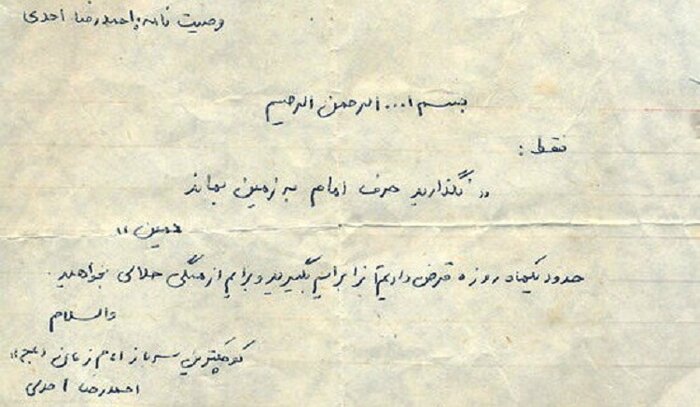 وصیت نامه احمدرضا احدی
بسم ا... الرحمن الرحیم
فقط:
«نگذارید حرف امام به زمین بماند
همین»
حدود یکماه روزه قرض دارم تا برایم بگیرید و برایم از همگی حلالی بخواهید.
والسلام
کوچکترین سرباز امام زمان «عج»
احمدرضا احدی